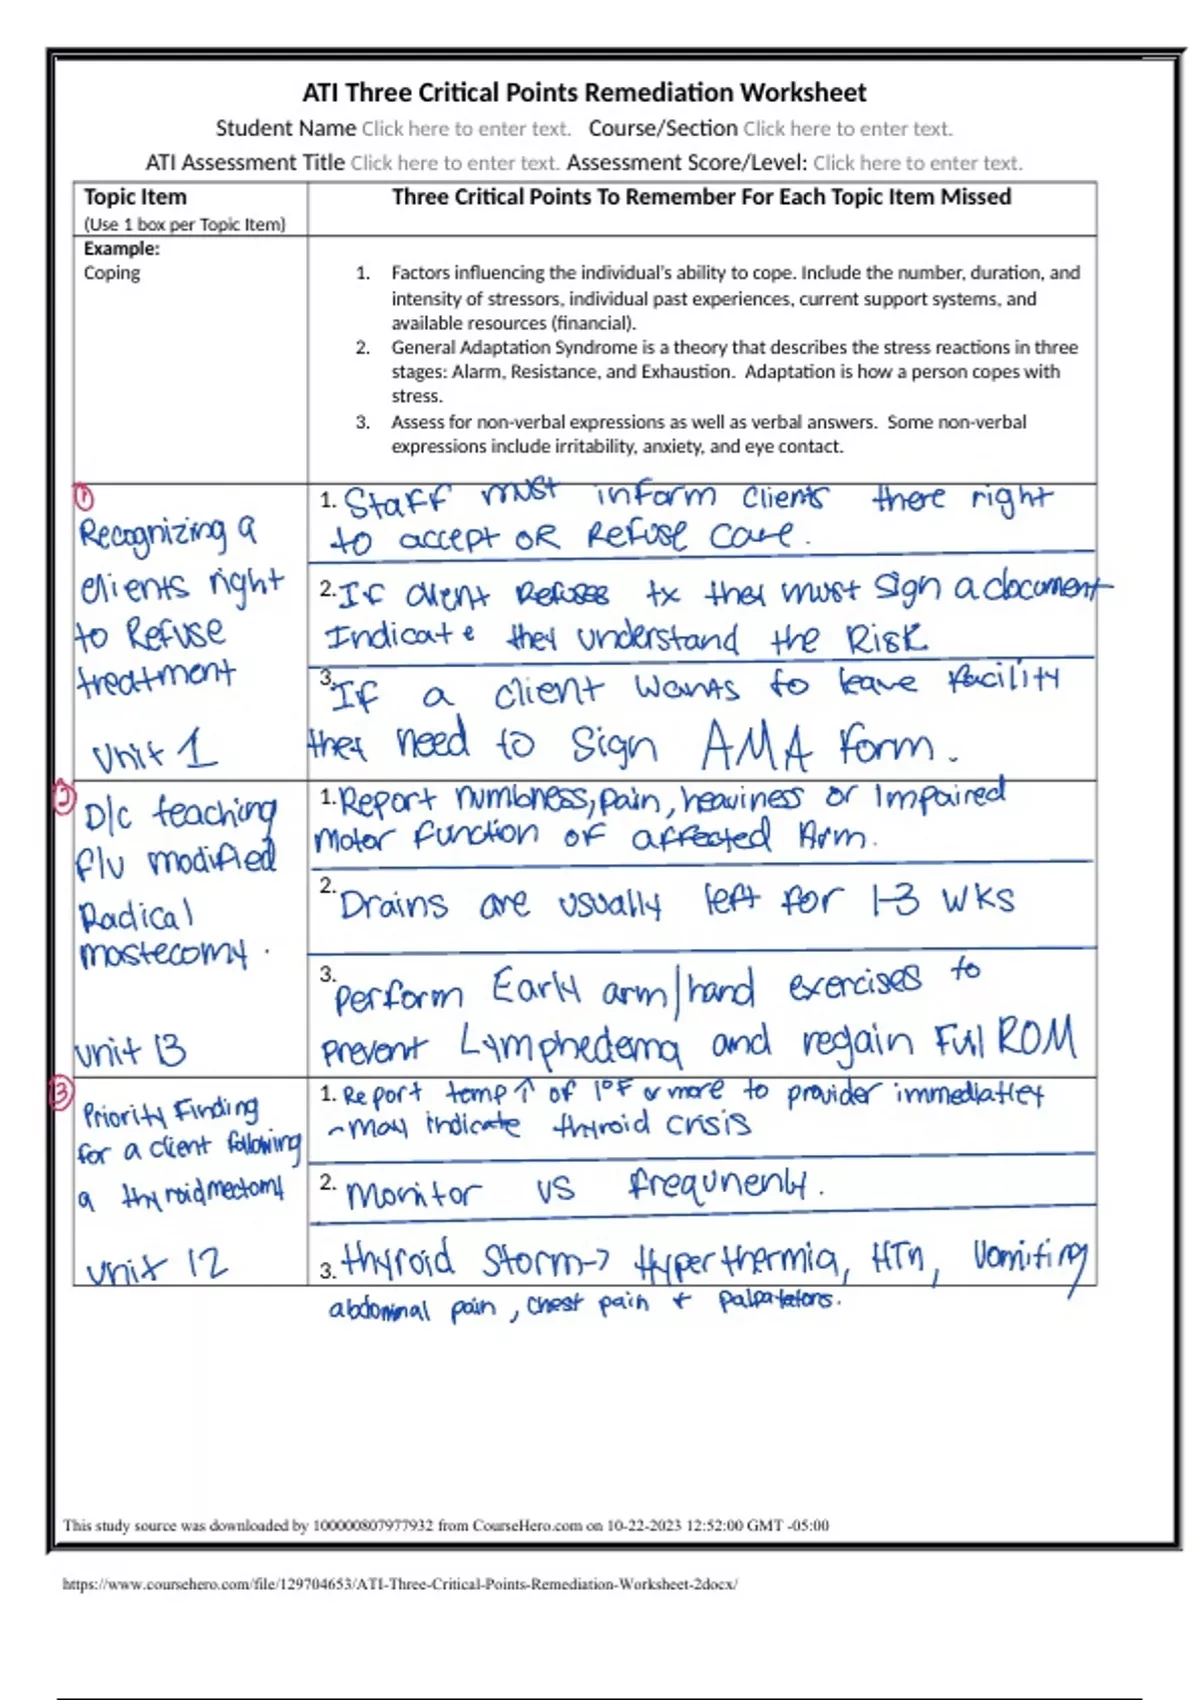 ATI Three Critical Points Remediation Worksheet
Student Name Click here to enter text. Course/Section Click here to enter text.
ATI Assessment Title Click here to enter text. Assessment Score/Level: Click here to enter text.
Topic Item
(Use 1 box per Topic Item)
Three Critical Points To Remember For Each Topic Item Missed
Example:
Coping
1. Factors influencing the individual's ability to cope. Include the number, duration, and
intensity of stressors, individual past experiences, current support systems, and
available resources (financial).
2. General Adaptation Syndrome is a theory that describes the stress reactions in three
stages: Alarm, Resistance, and Exhaustion. Adaptation is how a person copes with
stress.
3. Assess for non-verbal expressions as well as verbal answers. Some non-verbal
expressions include irritability, anxiety, and eye contact.
1
Recognizing a
clients right
to Refuse
treatment
Unit 1
1. Staff must inform clients there right
to accept OR Refuse care.
2. If client Refuses tx they must sign a document
Indicate they understand the Risk
3. If a client wants to leave facility
they need to sign AMA form.
2
D/c teaching
f/u modified
Radical
mastecomy.
unit 13
1. Report numbness, pain, heaviness or Impaired
motor function of affected Arm.
2. Drains are usually left for 1-3 wks
3. perform Early arm/hand exercises to
prevent Lymphedema and regain Full ROM
3
Priority Finding
for a client following
a thyroidmectomy
unit 12
1. Report temp ↑ of 1°F or more to provider immediatley
- may indicate thyroid crisis
2. Monitor VS frequnently.
3. thyroid Storm → Hyperthermia, HTn, Vomiting
abdominal pain, chest pain + palpatations.
This study source was downloaded by 100000807977932 from CourseHero.com on 10-22-2023 12:52:00 GMT -05:00
https://www.coursehero.com/file/129704653/ATI-Three-Critical-Points-Remediation-Worksheet-2docx/